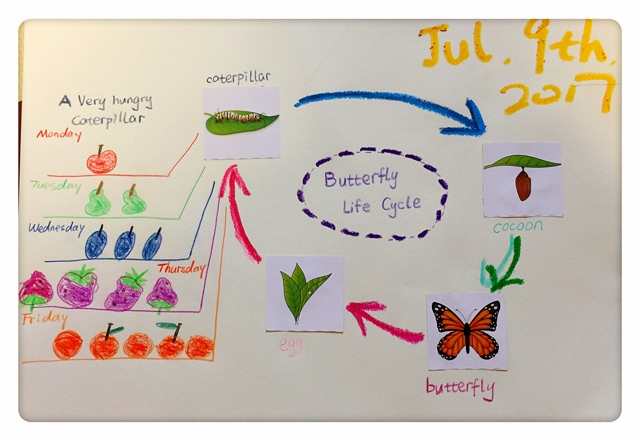 Jul. 9th.
2017
caterpillar
A Very hungry
Caterpillar
Monday
Tuesday
Wednesday
Thursday
Friday
Butterfly
Life Cycle
cocoon
egg
butterfly